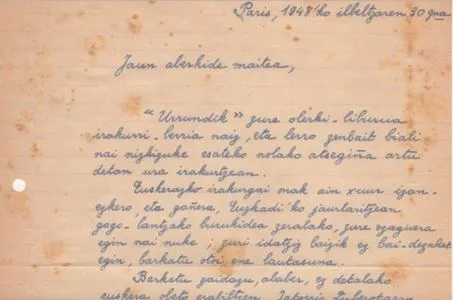 Paris, 1948'ko ilbeltzaren 30 gna
Jaun aberkide maitea,
"Urrundik" zure olerki-liburua
irakurri-berria naiz, eta lerro zenbait biali
nai nizkizuke esateko nolako atsegiña artu
detan ura irakurtzean.
Euskerazko irakurgai oiek ain xuur izan-
ezkero, eta gañera, Euzkadi'ko jaurlaritzan
gogo-lantzako burukidea zeralako, zure ezaguera
egin nai nuke; zuri idatziz baizik ez bai-dezaket
egin, barkatu otoi ene lautasuna.
Barkatu zaidazu, alaber, ez detalako
euskera obeto erabiltzen.